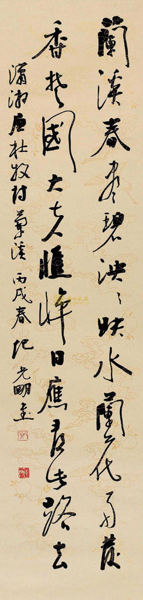 蘭溪春尽碧泱〻映水蘭花雨發
香楚國大夫憔悴日應尋此路去
瀟湘唐杜牧詩蘭溪丙戌春纪光明書